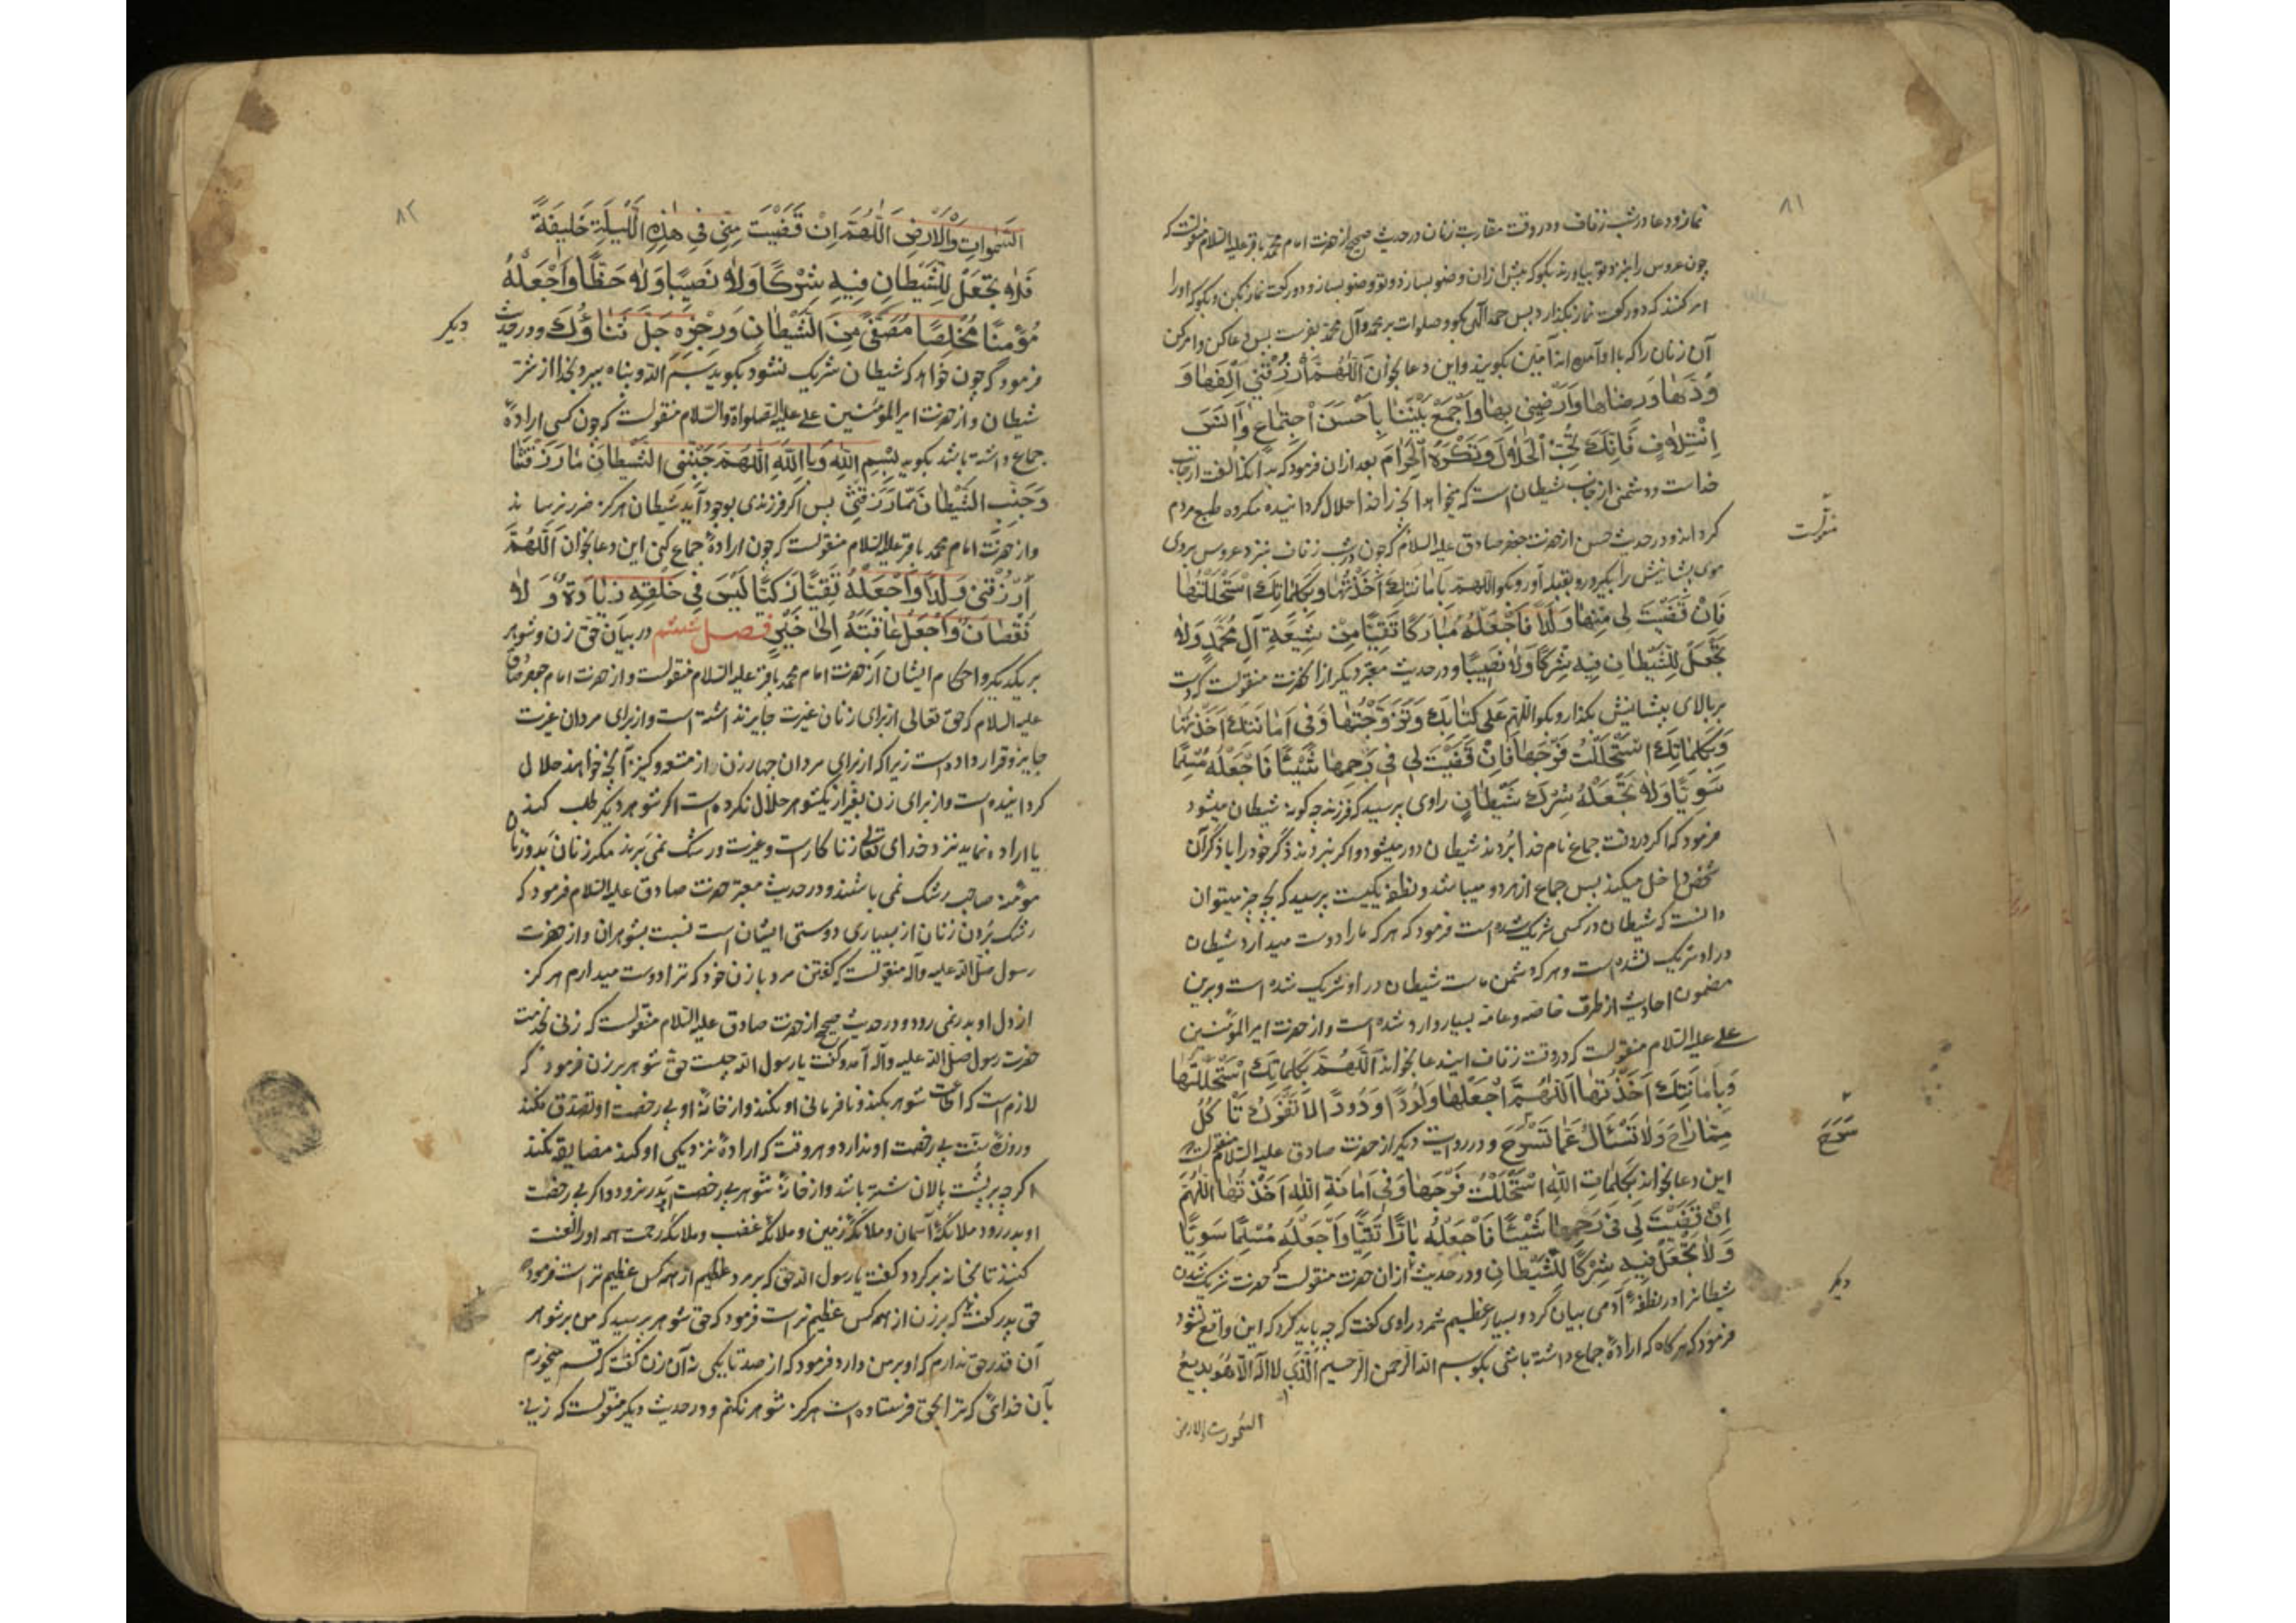 ۸۱
نماز و دعا در شب زفاف و در وقت مقاربت زنان در حدیث صحیح از حضرت امام محمد باقر علیه السلام منقولست که
چون عروس را بنزد تو بیاورند بگو که پیش از آن وضو بسازد و تو وضو بساز و دو رکعت نماز بکن و بگو که او را
امر کنند که دو رکعت نماز بگذارد پس حمد الهی بگو و صلوات بر محمد و آل محمد بفرست پس دعا کن و امر کن
آن زنان را که با او آمده اند آمین بگویند و این دعا بخوان اَللّٰهُمَّ ارْزُقْنِی اِلْفَهَا وَ
وُدَّهَا وَرِضَاهَا وَاَرْضِنِی بِهَا وَاجْمَعْ بَیْنَنَا بِاَحْسَنِ اجْتِمَاعٍ وَاَنَسِ
ائْتِلَافٍ فَاِنَّكَ تُحِبُّ الْحَلَالَ وَتَكْرَهُ الْحَرَامَ بعد از آن فرمود که بدانکه الفت از جانب
خداست و دشمنی از جانب شیطان است که میخواهد آنچه را خدا حلال گردانیده مکروه طبع مردم
گرداند و در حدیث حسن از حضرت جعفر صادق علیه السلام که چون در شب زفاف بنزد عروس بروی
منقولست
موی پیشانیش را بگیر و رو بقبله آور و بگو اللّٰهُمَّ بِاَمَانَتِكَ اَخَذْتُهَا وَبِكَلِمَاتِكَ اسْتَحْلَلْتُهَا
فَاِنْ قَضَیْتَ لِی مِنْهَا وَلَدًا فَاجْعَلْهُ مُبَارَكًا تَقِیًّا مِنْ شِیعَةِ آلِ مُحَمَّدٍ وَلَا
تَجْعَلْ لِلشَّیْطَانِ فِیهِ شِرْكًا وَلَا نَصِیبًا و در حدیث معتبر دیگر از آنحضرت منقولست که دست
بر بالای پیشانیش بگذار و بگو اللّٰهُمَّ عَلَی كِتَابِكَ وَتَزَوَّجْتُهَا وَفِی اَمَانَتِكَ اَخَذْتُهَا
وَبِكَلِمَاتِكَ اسْتَحْلَلْتُ فَرْجَهَا فَاِنْ قَضَیْتَ لِی فِی رَحِمِهَا شَیْئًا فَاجْعَلْهُ مُسْلِمًا
سَوِیًّا وَلَا تَجْعَلْهُ شِرْكَ شَیْطَانٍ راوی پرسید که فرزند چگونه شیطان میشود
فرمود که اگر در وقت جماع نام خدا بردند شیطان دور میشود و اگر نبردند ذکر خود را با ذکر آن
شخص داخل میکند پس جماع از هر دو میباشد و نطفه یکیست پرسید که بچه چیز میتوان
دانست که شیطان در کسی شریک شده است فرمود که هر که ما را دوست میدارد شیطان
در او شریک نشده است و هر که دشمن ماست شیطان در او شریک شده است و برین
مضمون احادیث از طرق خاصه و عامه بسیار وارد شده است و از حضرت امیر المؤمنین
علی علیه السلام منقولست که در وقت زفاف ایندعا بخواند اَللّٰهُمَّ بِكَلِمَاتِكَ اسْتَحْلَلْتُهَا
وَبِاَمَانَتِكَ اَخَذْتُهَا اَللّٰهُمَّ اجْعَلْهَا وَلُودًا وَدُودًا لَا تَفْرَكُ تَأْكُلُ
مِمَّا رَاحَ وَلَا تَسْئَالُ عَمَّا تَسْرَحَ و در روایت دیگر از حضرت صادق علیه السلام منقولست که
سَرَحَ
این دعا بخواند بِكَلِمَاتِ اللّٰهِ اسْتَحْلَلْتُ فَرْجَهَا وَفِی اَمَانَةِ اللّٰهِ اَخَذْتُهَا اَللّٰهُمَّ
اِنْ قَضَیْتَ لِی فِی رَحِمِهَا شَیْئًا فَاجْعَلْهُ بَارًّا تَقِیًّا وَاجْعَلْهُ مُسْلِمًا سَوِیًّا
وَلَا تَجْعَلْ فِیهِ شِرْكًا لِلشَّیْطَانِ و در حدیث از آن حضرت منقولست که حضرت شریک شدن
دیگر
شیطان را در نطفهٔ آدمی بیان کرد و بسیار عظیم شمرد راوی گفت که چه باید کرد که این واقع نشود
فرمود که هر گاه که ارادهٔ جماع داشته باشی بگو بسم الله الرحمن الرحیم الَّذِی لَا اِلٰهَ اِلَّا هُوَ بَدِیعُ
السموات والارض
۸۲
السَّمٰوَاتِ وَالْاَرْضِ اَللّٰهُمَّ اِنْ قَضَیْتَ مِنِّی فِی هٰذِهِ اللَّیْلَةِ خَلِیفَةً
فَلَا تَجْعَلْ لِلشَّیْطَانِ فِیهِ شِرْكًا وَلَا نَصِیبًا وَلَا حَظًّا وَاجْعَلْهُ
مُؤْمِنًا مُخْلِصًا مُصَفًّی مِنَ الشَّیْطَانِ وَرِجْزِهِ جَلَّ ثَنَاؤُكَ و در حدیث
دیگر
فرمود که چون خواهد که شیطان شریک نشود بگوید بسم الله و پناه ببرد بخدا از شر
شیطان و از حضرت امیر المؤمنین علی علیه الصلواة والسلام منقولست که چون کسی ارادهٔ
جماع داشته باشد بگوید بِسْمِ اللّٰهِ وَبِاللّٰهِ اَللّٰهُمَّ جَنِّبْنِی الشَّیْطَانَ مَا رَزَقْتَنَا
وَجَنِّبِ الشَّیْطَانَ مِمَّا رَزَقْتَنِی پس اگر فرزندی بوجود آید شیطان هرگز ضرر نرساند
و از حضرت امام محمد باقر علیه السلام منقولست که چون ارادهٔ جماع کنی این دعا بخوان اَللّٰهُمَّ
ارْزُقْنِی وَلَدًا وَاجْعَلْهُ تَقِیًّا زَكِیًّا لَیْسَ فِی خَلْقِهِ زِیَادَةٌ وَلَا
نُقْصَانٌ وَاجْعَلْ عَاقِبَتَهُ اِلَی خَیْرٍ فصل ششم در بیان حق زن و شوهر
بر یکدیگر و احکام ایشان از حضرت امام محمد باقر علیه السلام منقولست و از حضرت امام جعفر صادق
علیه السلام که حق تعالی از برای زنان غیرت جایز نداشته است و از برای مردان غیرت
جایز و قرار داده است زیرا که از برای مردان چهار زن و از متعه و کنیز آنچه خواهند حلال
گردانیده است و از برای زن بغیر از یکشوهر حلال نکرده است اگر شوهر دیگر طلب کند
یا اراده نماید نزد خدای تعالی زنا کار است و غیرت و رشک نمی برند مگر زنان بد و زنان
مؤمنه صاحب رشک نمی باشند و در حدیث معتبر حضرت صادق علیه السلام فرمود که
رشک بردن زنان از بسیاری دوستی ایشان است نسبت بشوهران و از حضرت
رسول صلی الله علیه وآله منقولست که گفتن مرد با زن خود که ترا دوست میدارم هرگز
از دل او بدر نمی رود و در حدیث صحیح از حضرت صادق علیه السلام منقولست که زنی بخدمت
حضرت رسول صلی الله علیه وآله آمد و گفت یا رسول الله چیست حق شوهر بر زن فرمود که
لازم است که اطاعت شوهر بکند و نافرمانی او نکند و از خانهٔ او بی رخصت او تصدق نکند
و روزهٔ سنت بی رخصت او ندارد و هر وقت که ارادهٔ نزدیکی او کند مضایقه نکند
اگرچه بر پشت پالان شتر باشد و از خانهٔ شوهر بی رخصت بدر نرود و اگر بی رخصت
او بدر رود ملائکهٔ آسمان و ملائکهٔ زمین و ملائکهٔ غضب و ملائکهٔ رحمت همه او را لعنت
کنند تا بخانه برگردد گفت یا رسول الله حق که بر مرد عظیم از همه کس عظیم تر است فرمود
حق پدر گفت که بر زن از همه کس عظیم تر است فرمود که حق شوهر پرسید که من بر شوهر
آن قدر حق ندارم که او بر من دارد فرمود که از صد تا یکی نه آن زن گفت که قسم میخورم
بآن خدائی که ترا بحق فرستاده است هرگز شوهر نکنم و در حدیث دیگر منقولست که زنی